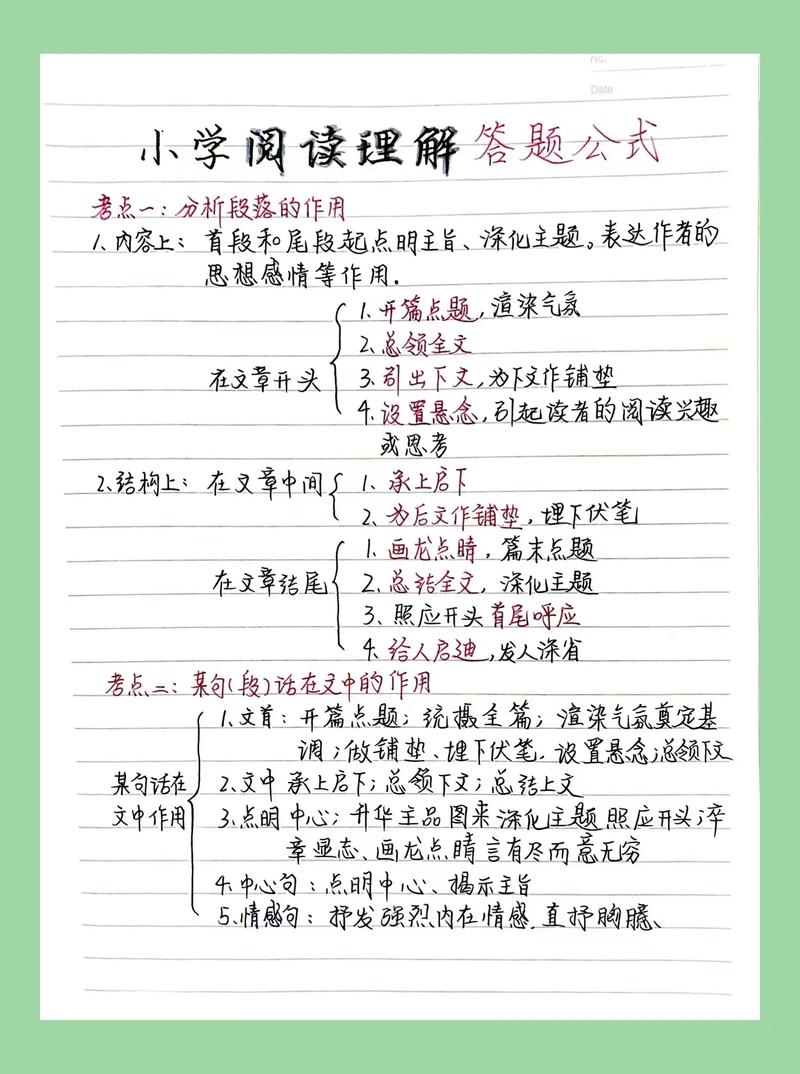 No.
Date
小学阅读理解答题公式
考点一:分析段落的作用
1.内容上: 首段和尾段起点明主旨、深化主题。表达作者的
思想感情等作用.
在文章开头
1.开篇点题,渲染气氛
2.总领全文
3.引出下文,为下文作铺垫
4.设置悬念,引起读者的阅读兴趣
或思考
2.结构上: 在文章中间
1. 承上启下
2.为后文作铺垫,埋下伏笔
在文章结尾
1.画龙点睛,篇末点题
2.总结全文,深化主题
3.照应开头首尾呼应
4.给人启迪,发人深省
考点二:某句(段)话在文中的作用
某句话在
文中作用
1.文首:开篇点题;统摄全篇;渲染气氛奠定基
调;做铺垫、埋下伏笔.设置悬念;总领下文
2.文中 承上启下;总领下文;总结上文
3.点明中心;升华主品图来深化主题 照应开头;卒
章显志、画龙点睛言有尽而意无穷
4.中心句:点明中心、揭示主旨
5.情感句:抒发强烈内在情感.直抒胸臆、